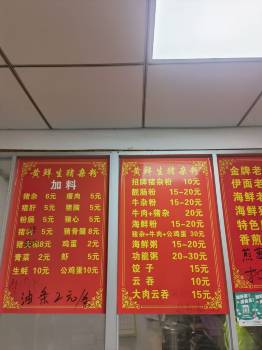 黄鲜生猪杂粉
加料
猪杂 6元 瘦肉 5元
猪肝 5元 猪腰 5元
粉肠 5元 猪心 5元
5元 猪骨腩 8元
8元 鸡蛋 2元
青菜 2元 虾 5元
生蚝 10元 公鸡蛋10元
油条2元/条
黄鲜生猪杂粉
招牌猪杂粉 10元
靓肠粉 15~20元
牛杂粉 15~20元
牛肉+猪杂 20元
海鲜粉 15~20元
猪杂+牛肉+公鸡蛋 30元
海鲜粥 15~20元
功能粥 20~30元
饺子 15元
云吞 10元
大肉云吞 15元
金牌老
伊面老
海鲜老
海鲜
特色
香煎